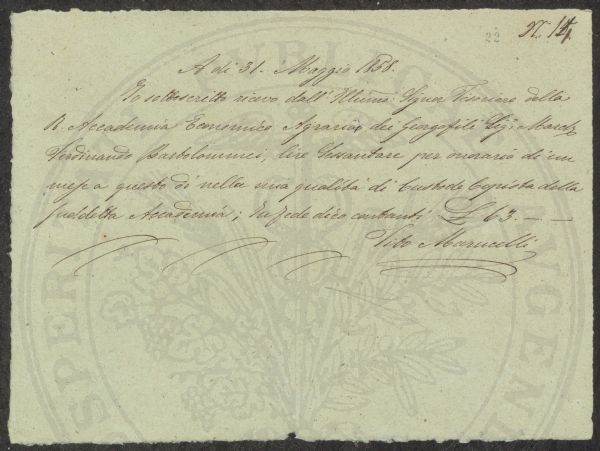 22 N. 14
A dì 31. Maggio 1858.
Io sottoscritto ricevo dall' Illmo Signor Tesoriere della
R. Accademia Economico Agraria dei Georgofili Sig. March.
Ferdinando Bartolommei, lire Sessantatre per onorario di un
mese a questo dì nella mia qualità di Custode Copista della
suddetta Accademia; In fede dico contanti £ 63. — —
Tito Marucelli